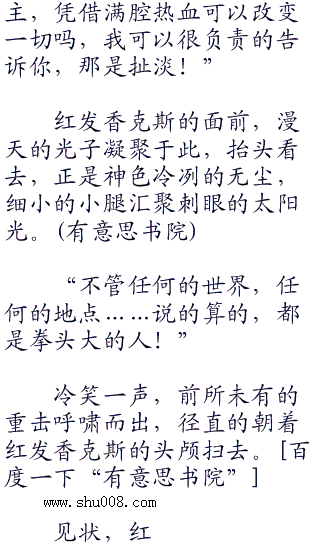 主，凭借满腔热血可以改变
一切吗，我可以很负责的告
诉你，那是扯淡！”
红发香克斯的面前，漫
天的光子凝聚于此，抬头看
去，正是神色冷冽的无尘，
细小的小腿汇聚刺眼的太阳
光。(有意思书院)
“不管任何的世界，任
何的地点……说的算的，都
是拳头大的人！”
冷笑一声，前所未有的
重击呼啸而出，径直的朝着
红发香克斯的头颅扫去。[百
度一下“有意思书院”]
www.shu008.com
见状，红